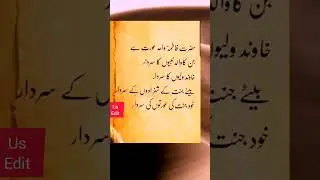 حضرت فاطمہؑ واحد عورت ہے
جن کا والد نبیوں کا سردار
خاوند ولیوں کا سردار
بیٹے جنت کے شہزادوں کے سردار
خود جنت کی عورتوں کی سردار
Us
Edit